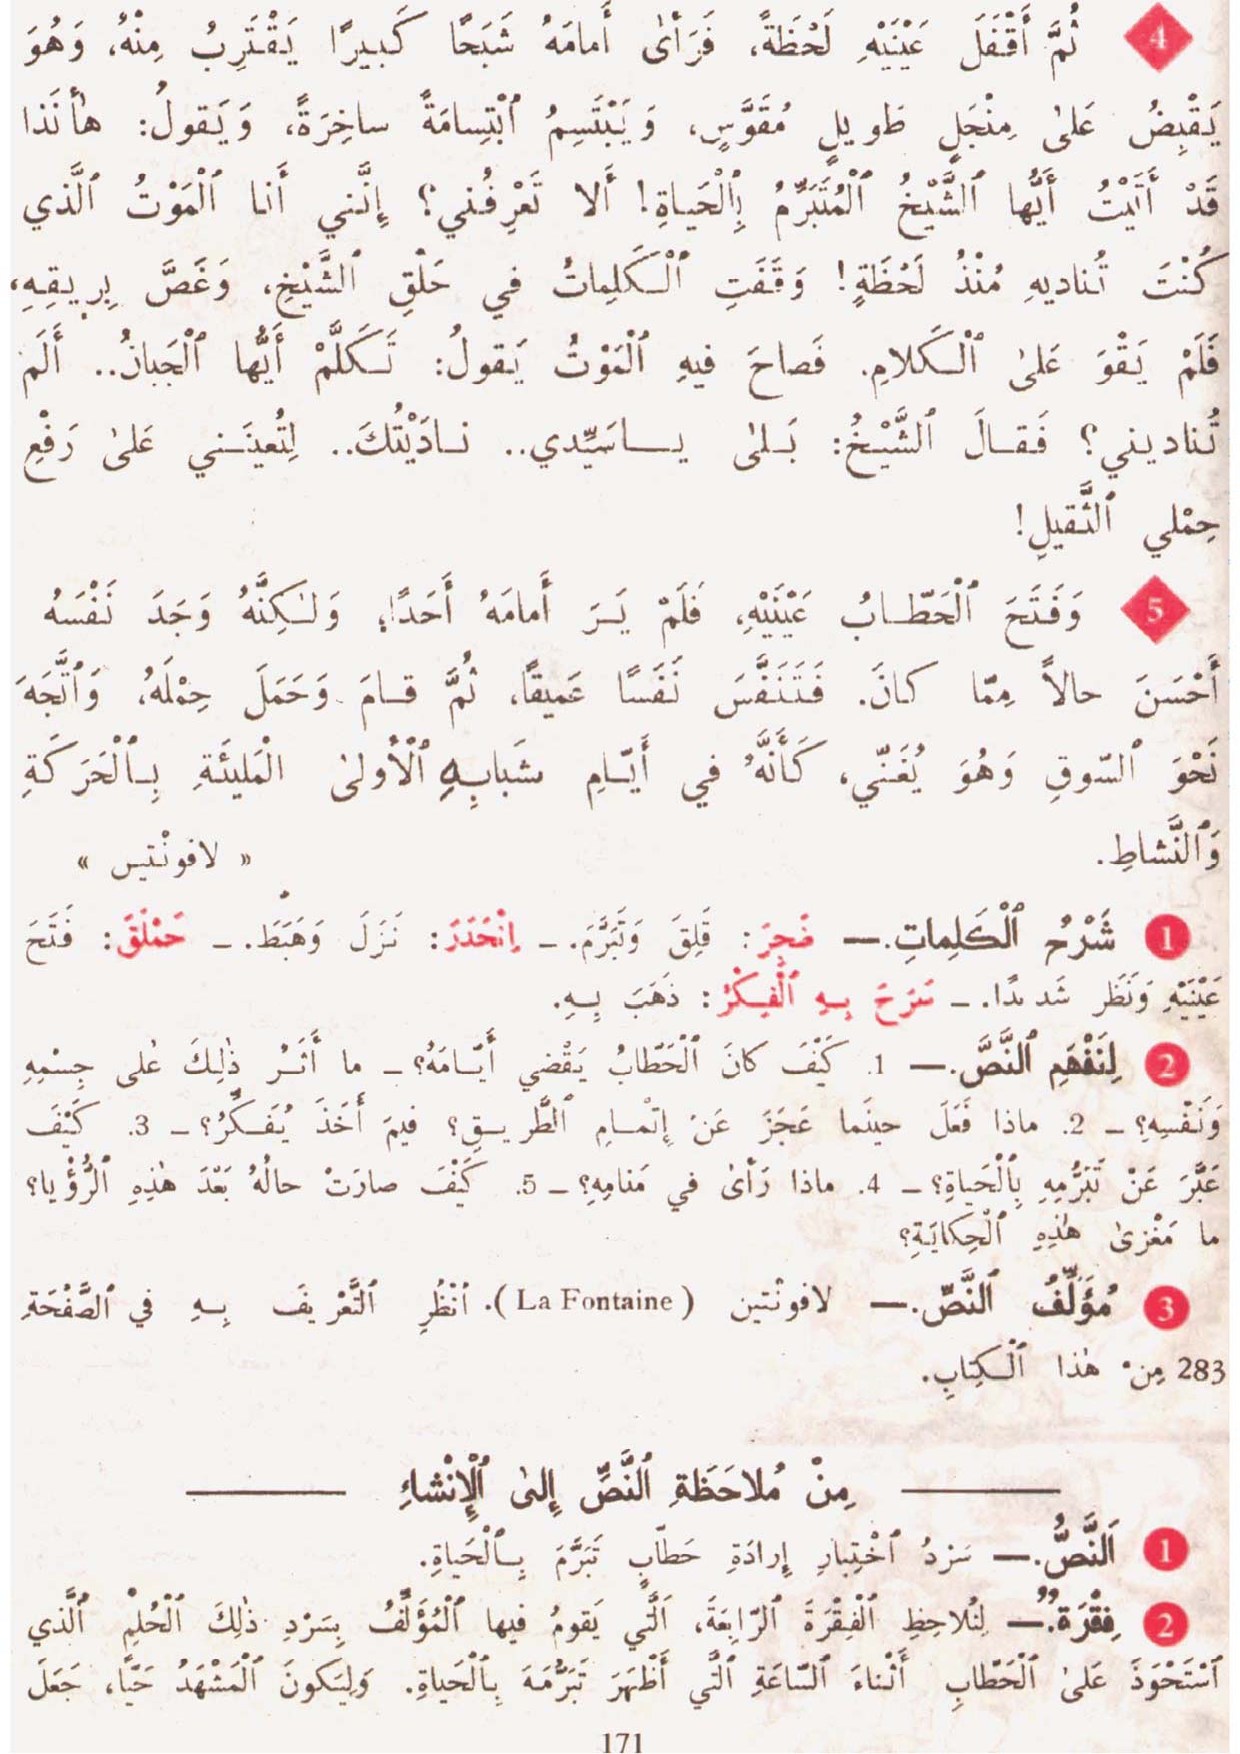 4 ثُمَّ أَقْفَلَ عَيْنَيْهِ لَحْظَةً، فَرَأىٰ أَمامَهُ شَبَحًا كَبيرًا يَقْتَرِبُ مِنْهُ، وَهُوَ
يَقْبِضُ عَلىٰ مِنْجَلٍ طَويلٍ مُقَوَّسٍ، وَيَبْتَسِمُ ٱبْتِسامَةً ساخِرَةً، وَيَقولُ: هأَنَذا
قَدْ أَتَيْتُ أَيُّها ٱلشَّيْخُ ٱلْمُتَبَرِّمُ بِٱلْحَياةِ! أَلا تَعْرِفُني؟ إِنَّني أَنا ٱلْمَوْتُ ٱلَّذي
كُنْتَ تُناديهِ مُنْذُ لَحْظَةٍ! وَقَفَتِ ٱلْكَلِماتُ في حَلْقِ ٱلشَّيْخِ، وَغَصَّ بِريقِهِ،
فَلَمْ يَقْوَ عَلىٰ ٱلْكَلامِ. فَصاحَ فيهِ ٱلْمَوْتُ يَقولُ: تَكَلَّمْ أَيُّها ٱلْجَبانُ.. أَلَم
تُناديني؟ فَقالَ ٱلشَّيْخُ: بَلىٰ ياسَيِّدي.. نادَيْتُكَ.. لِتُعينَني عَلىٰ رَفْعِ
حِمْلي ٱلثَّقيلِ!
5 وَفَتَحَ ٱلْحَطّابُ عَيْنَيْهِ، فَلَمْ يَرَ أَمامَهُ أَحَدًا؛ وَلٰكِنَّهُ وَجَدَ نَفْسَهُ
أَحْسَنَ حالاً مِمّا كانَ. فَتَنَفَّسَ نَفَسًا عَميقًا، ثُمَّ قامَ وَحَمَلَ حِمْلَهُ، وَٱتَّجَهَ
نَحْوَ ٱلسّوقِ وَهُوَ يُغَنّي، كَأَنَّهُ في أَيّامِ شَبابِهِ ٱلْأولىٰ الْمَليئَةِ بِٱلْحَرَكَةِ
وَٱلنَّشاطِ.
« لافونْتيس »
1 شَرْحُ ٱلْكَلِماتِ.— ضَجِرَ: قَلِقَ وَتَبَرَّمَ. – اِنْحَدَرَ: نَزَلَ وَهَبَطَ. – حَمْلَقَ: فَتَحَ
عَيْنَيْهِ وَنَظَر شَديدًا. – سَرَحَ بِهِ ٱلْفِكْرُ: ذَهَبَ بِهِ.
2 لِنَفْهَمِ ٱلنَّصَّ.— 1. كَيْفَ كانَ ٱلْحَطّابُ يَقْضي أَيّامَهُ؟ – ما أَثَرُ ذٰلِكَ عَلى جِسْمِهِ
وَنَفْسِهِ؟ – 2. ماذا فَعَلَ حينَما عَجَزَ عَنْ إِتْمامِ ٱلطَّريقِ؟ فيمَ أَخَذَ يُفَكِّرُ؟ – 3. كَيْفَ
عَبَّرَ عَنْ تَبَرُّمِهِ بِٱلْحَياةِ؟ – 4. ماذا رَأىٰ في مَنامِهِ؟ – 5. كَيْفَ صارَتْ حالُهُ بَعْدَ هٰذِهِ ٱلرُّؤْيا؟
ما مَغْزىٰ هٰذِهِ ٱلْحِكايَةِ؟
3 مُؤَلِّفُ ٱلنَّصِّ.— لافونْتين (La Fontaine). اُنْظُرِ ٱلتَّعْريفَ بِهِ في ٱلصَّفْحَةِ
283 مِنْ هٰذا ٱلْكِتابِ.
مِنْ مُلاحَظَةِ ٱلنَّصِّ إِلىٰ ٱلْإِنْشاءِ
1 اَلنَّصُّ.— سَرْدُ ٱخْتِبارِ إِرادَةِ حَطّابٍ تَبَرَّمَ بِٱلْحَياةِ.
2 فِقْرَةٌ.— لِنُلاحِظِ ٱلْفِقْرَةَ ٱلرّابِعَةَ، اَلَّتي يَقومُ فيها ٱلْمُؤَلِّفُ بِسَرْدِ ذٰلِكَ ٱلْحُلْمِ ٱلَّذي
ٱسْتَحْوَذَ عَلىٰ ٱلْحَطّابِ أَثْناءَ ٱلسّاعَةِ ٱلَّتي أَظْهَرَ تَبَرُّمَهُ بِٱلْحَياةِ. وَلِيَكونَ ٱلْمَشْهَدُ حَيًّا، جَعَلَ
171